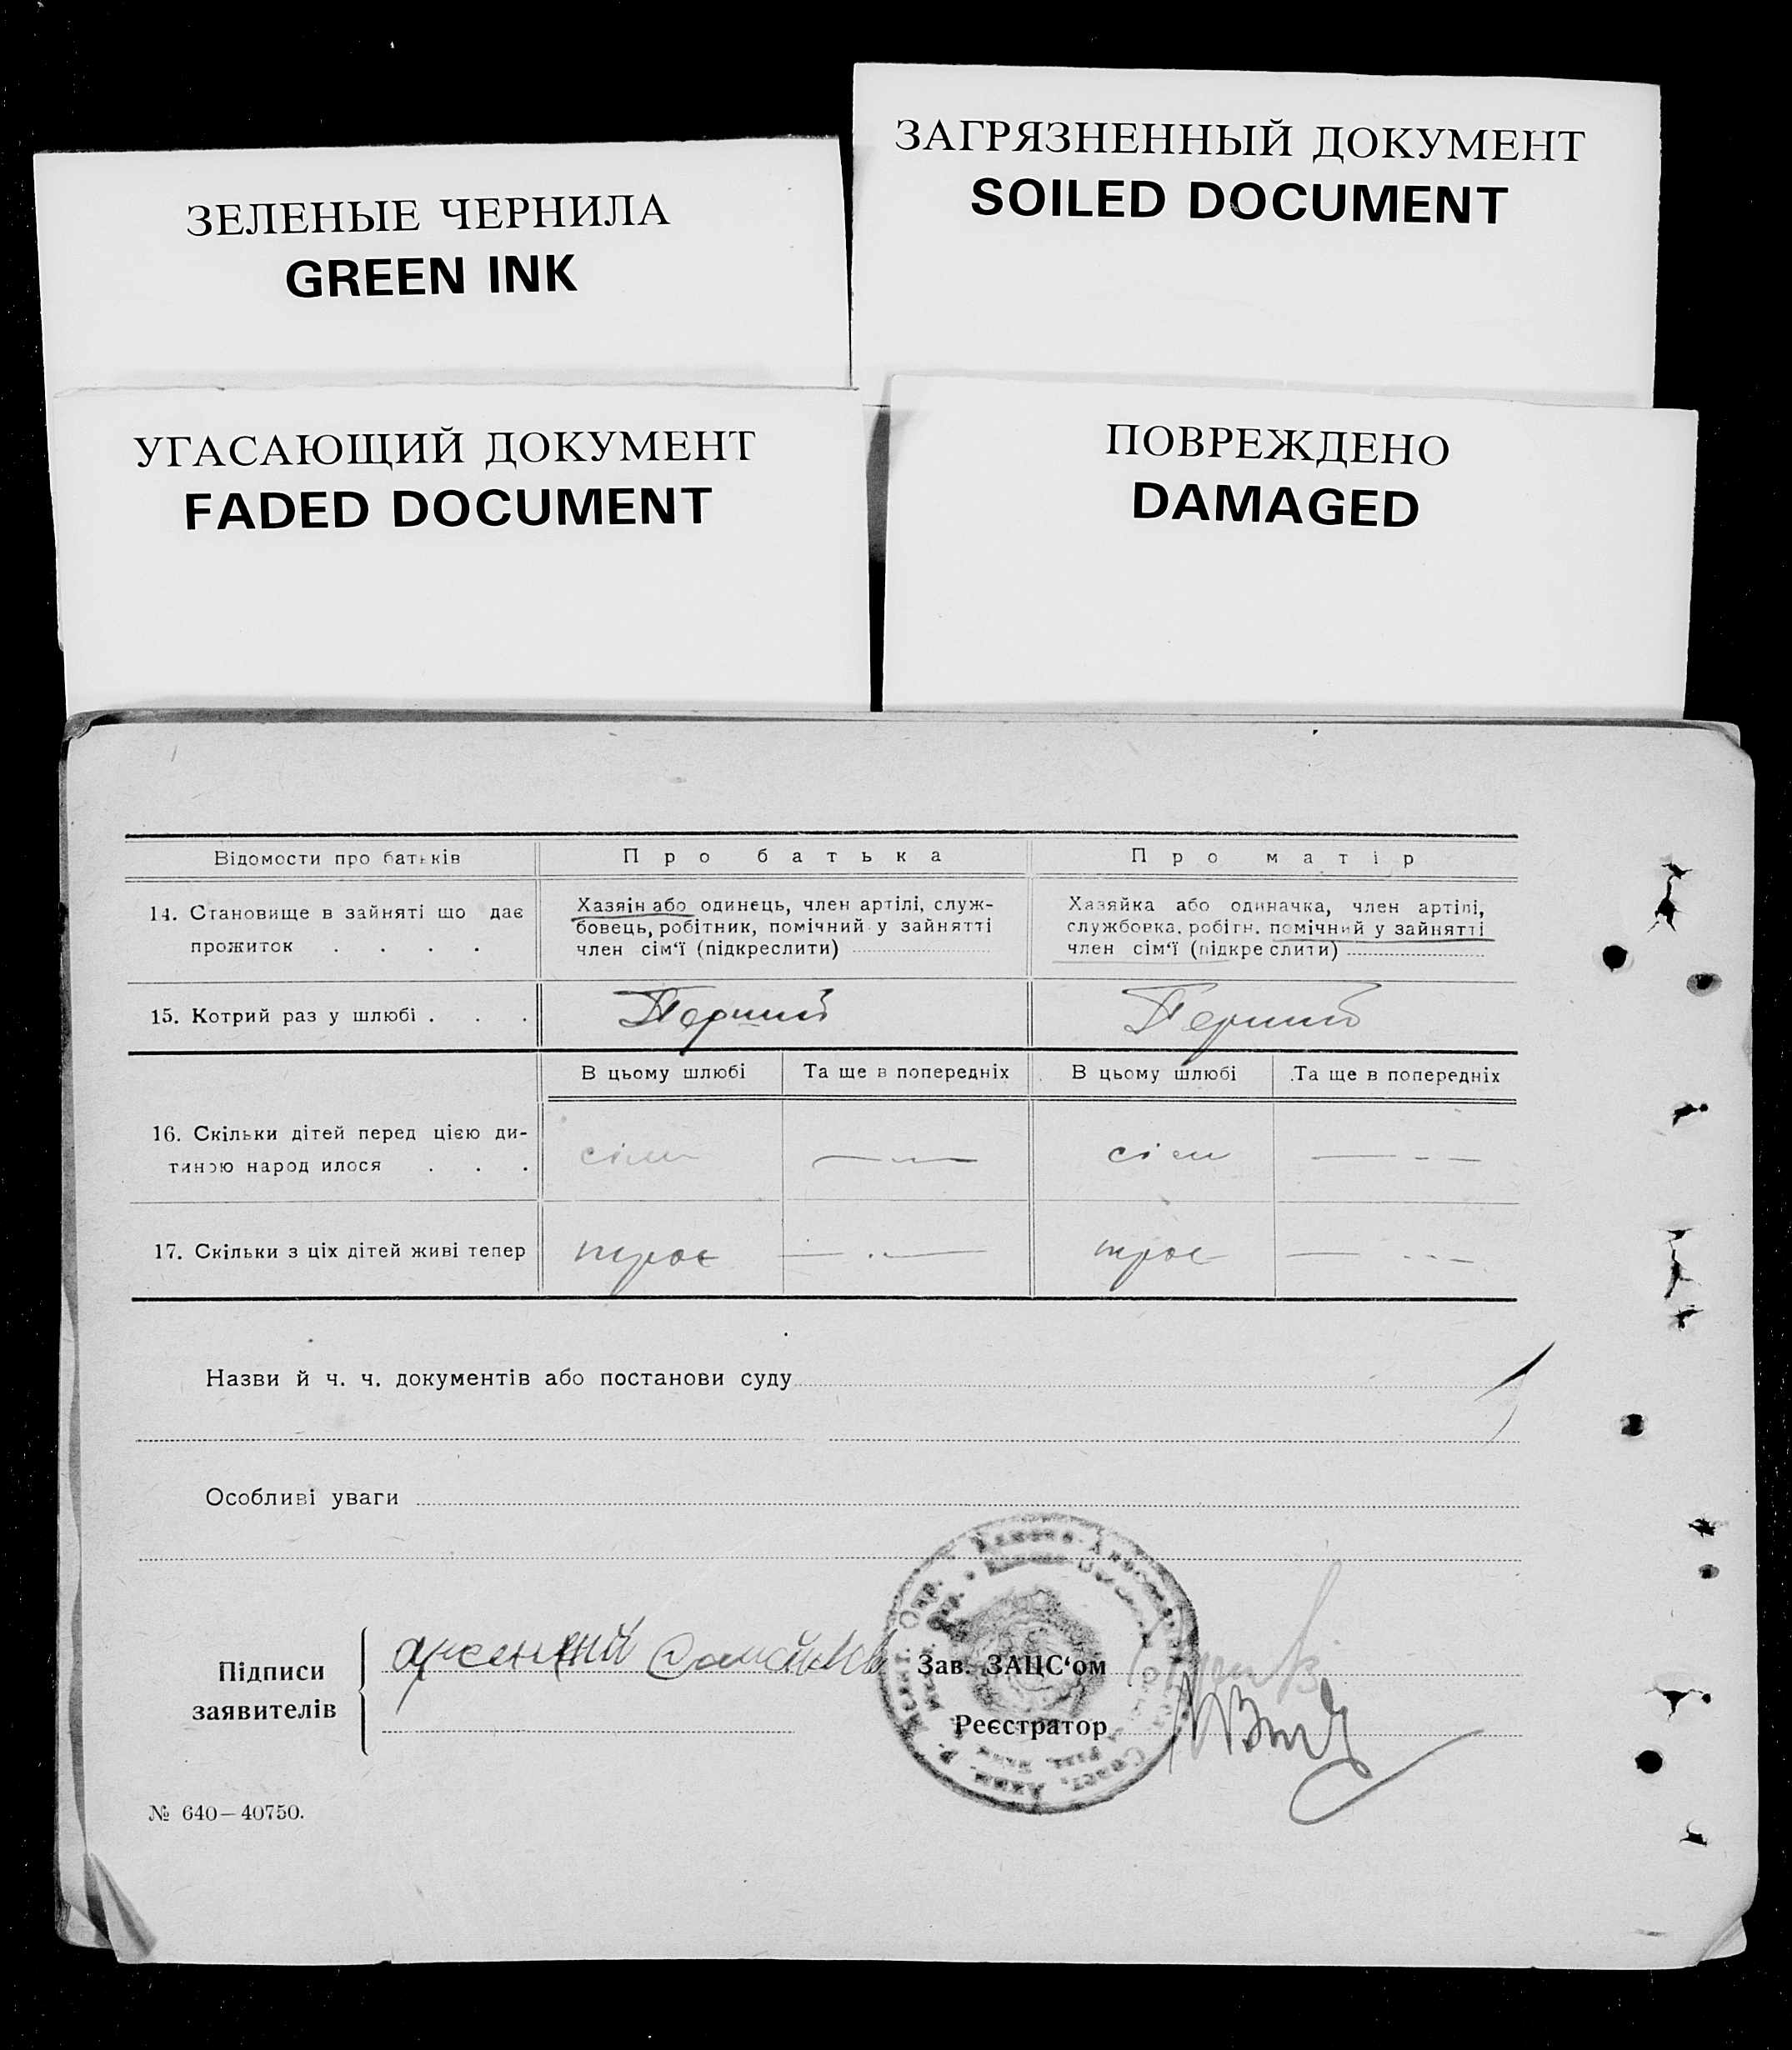 ЗЕЛЕНЫЕ ЧЕРНИЛА
GREEN INK
ЗАГРЯЗНЕННЫЙ ДОКУМЕНТ
SOILED DOCUMENT
УГАСАЮЩИЙ ДОКУМЕНТ
FADED DOCUMENT
ПОВРЕЖДЕНО
DAMAGED
Відомости про батьків
Про батька
Про матір
14. Становище в зайняті що дає
прожиток . . . .
Хазяін або одинець, член артілі, служ-
бовець, робітник, помічний у зайнятті
член сім‘ї (підкреслити)
Хазяйка або одиначка, член артілі,
службовка. робітн. помічний у зайнятті
член сім‘ї (підкреслити)
15. Котрий раз у шлюбі . . .
Перший
Перший
В цьому шлюбі
Та ще в попередніх
В цьому шлюбі
Та ще в попередніх
16. Скільки дітей перед цією ди-
тиною народилося . . .
сім
сім
17. Скільки з ціх дітей живі тепер
троє
троє
Назви й ч. ч. документів або постанови суду
Особливі уваги
Підписи
заявителів
Зав. ЗАЦС‘ом
Реєстратор
№ 640—40750.